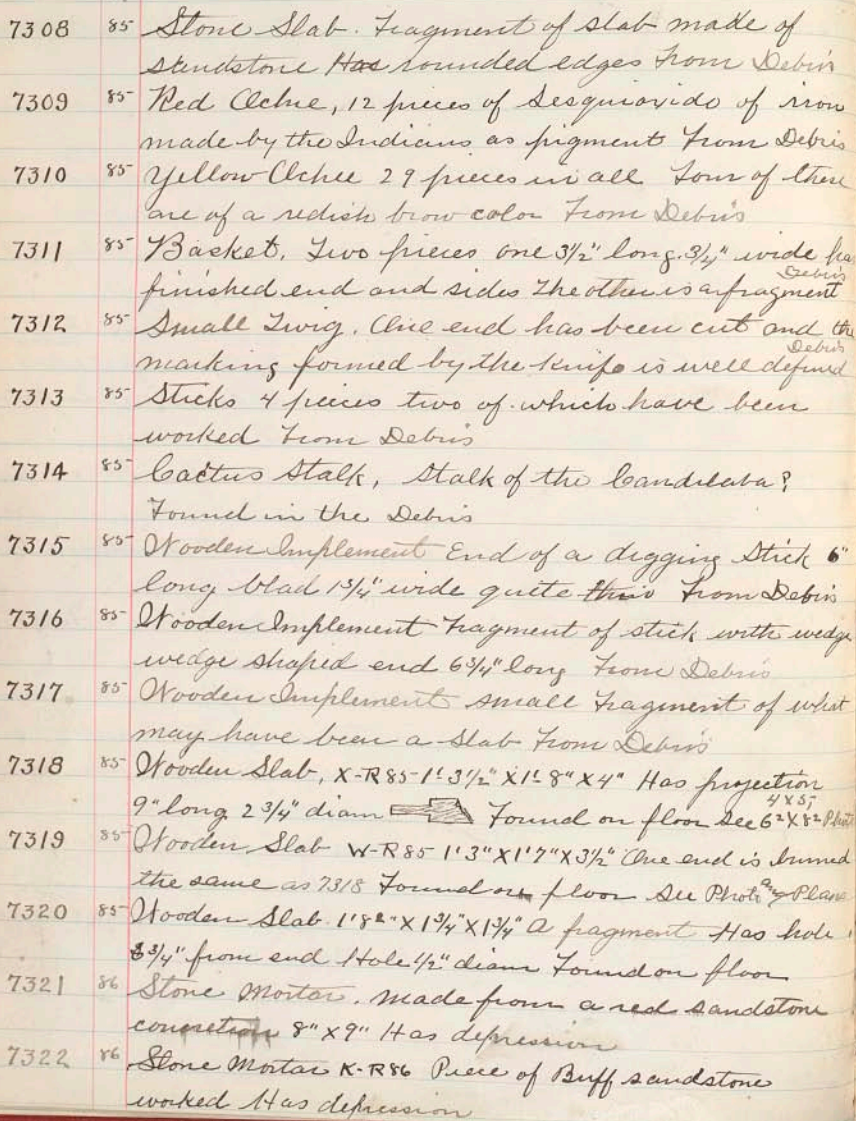 7308 85 Stone Slab. Fragment of slab made of
sandstone Has rounded edges From Debris
7309 85 Red Ochre, 12 pieces of Sesquioxide of iron
made by the Indians as pigment From Debris
7310 85 Yellow Ochre 29 pieces in all Four of these
are of a redish brow color From Debris
7311 85 Basket. Two pieces one 3 1/2" long. 3/4" wide ha
Debris
finished end and sides The other is a fragment
7312 85 Small Twig. One end has been cut and the
Debris
marking formed by the knife is well defined
7313 85 Sticks 4 pieces two of which have been
worked From Debris
7314 85 Cactus Stalk, Stalk of the Candelaba?
Found in the Debris
7315 85 Wooden Implement End of a digging Stick 6"
long blad 1 3/4" wide quite thin From Debris
7316 85 Wooden Implement Fragment of stick with wedge
wedge shaped end 6 3/4" long From Debris
7317 85 Wooden Implement small Fragment of what
may have been a Slab From Debris
7318 85 Wooden Slab, X-R85-1' 3 1/2" X 1' 8" X 4" Has projection
4 X 5,
9" long 2 3/4" diam Found on floor See 6 2 X 8 2 Photo
7319 85 Wooden Slab W-R85 1' 3" X 1' 7" X 3 1/2" One end is burned
the same as 7318 Found on floor See Photo any Plans
7320 85 Wooden Slab 1' 8" X 1 3/4" X 1 3/4" A fragment Has hole
3 3/4" from end Hole 1/2" diam Found on floor
7321 86 Stone Mortar. Made from a red sandstone
concretion 8" X 9" Has depression
7322 86 Stone Mortar K-R86 Piece of Buff sandstone
worked Has depression